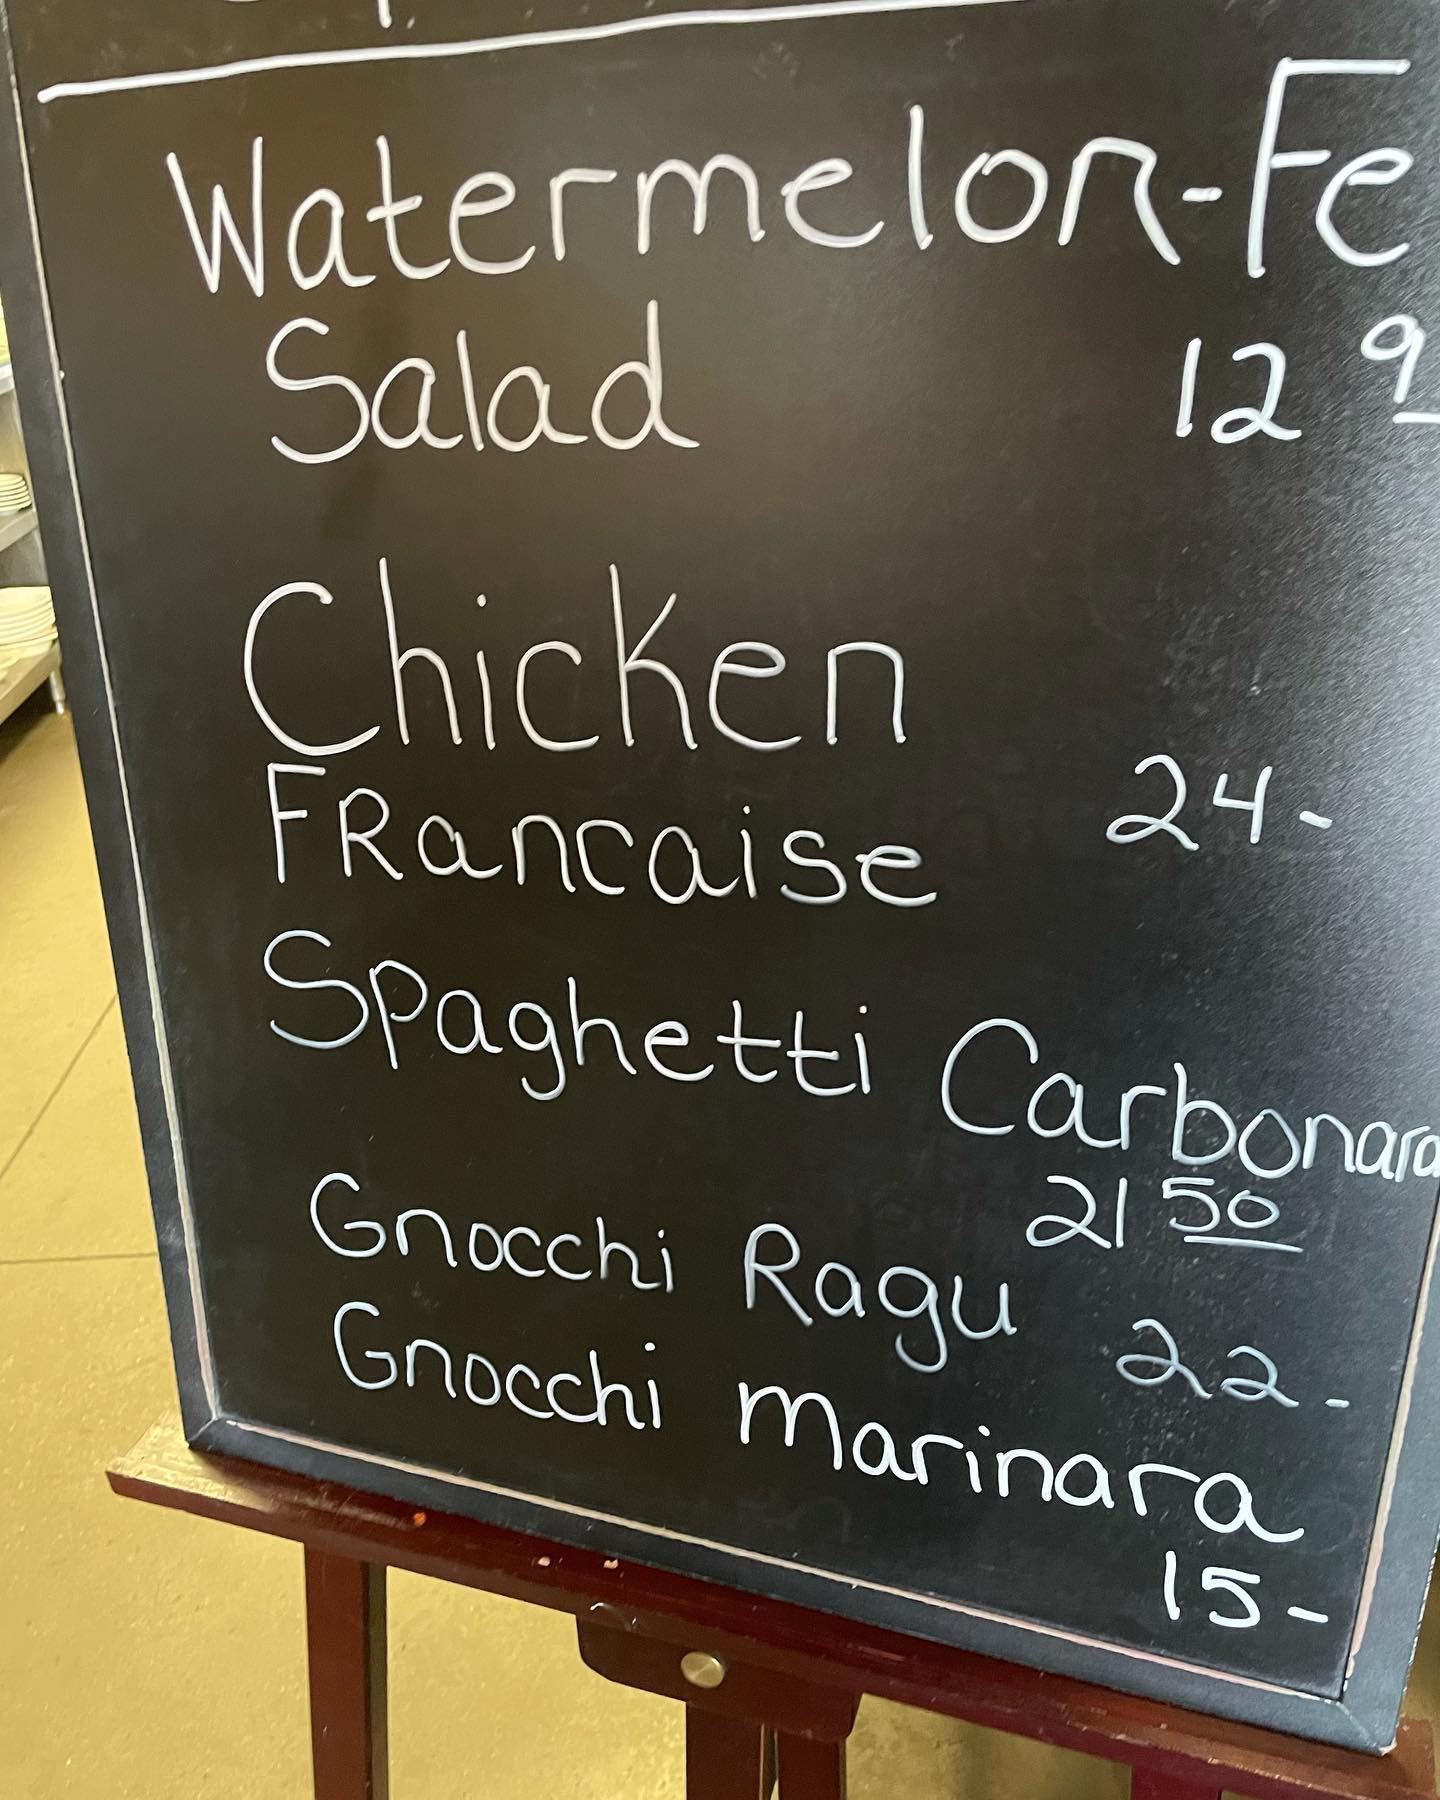 Watermelon-Fe
Salad 12 9
Chicken
FRancaise 24-
Spaghetti Carbonara
21 50
Gnocchi Ragu 22-
Gnocchi Marinara
15-